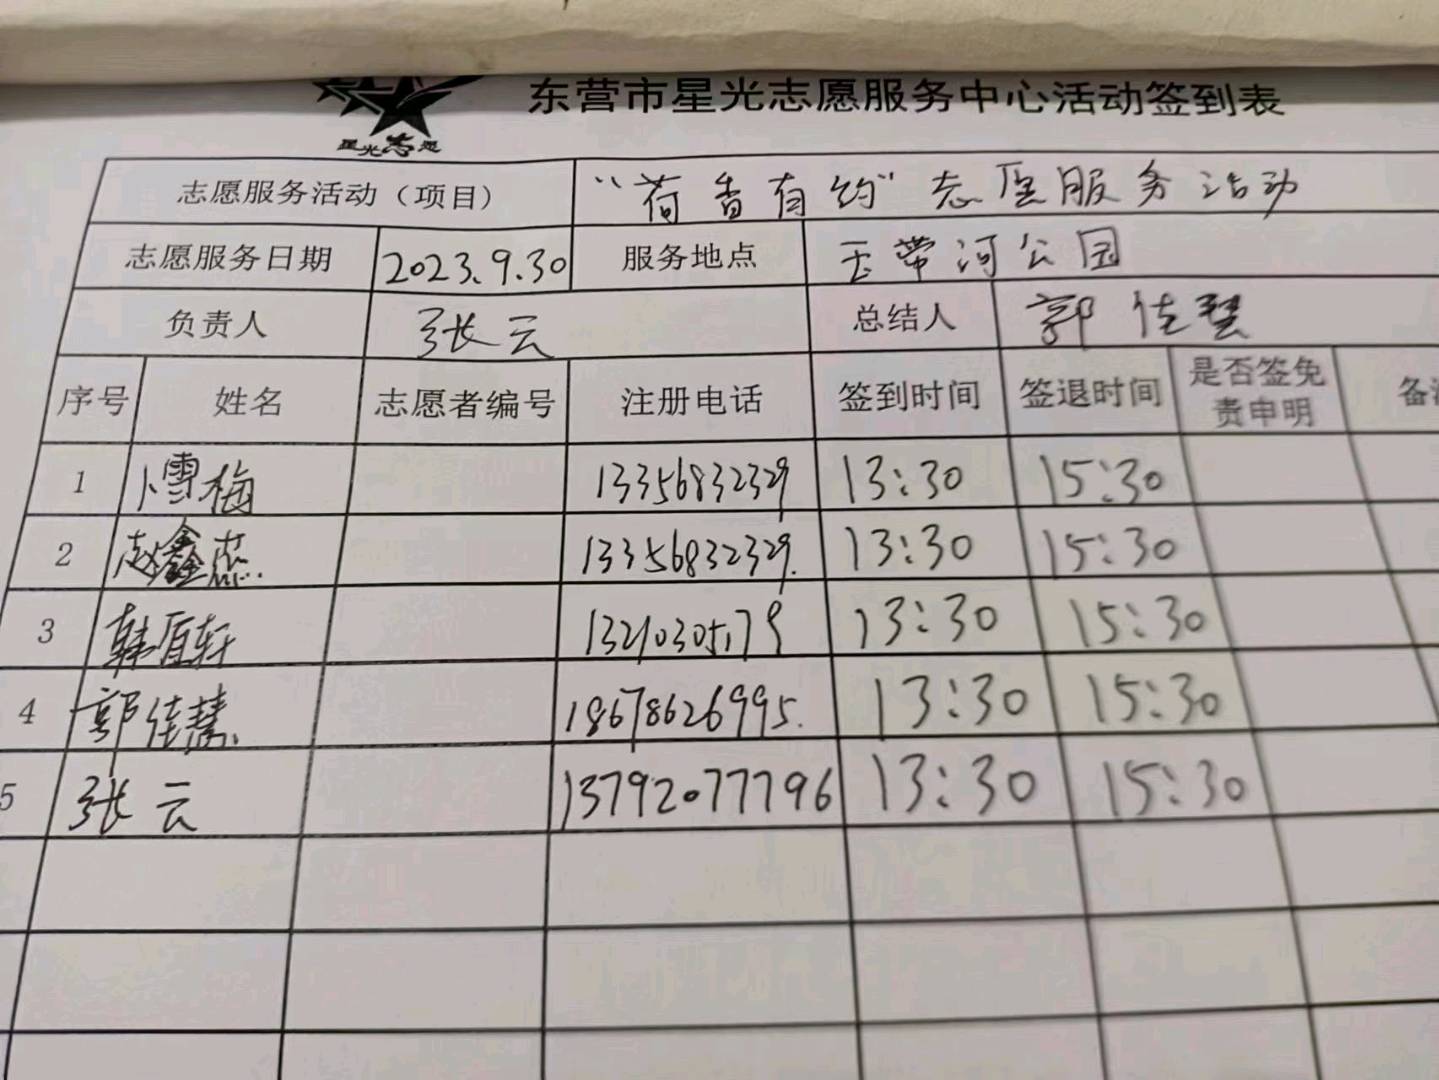 东营市星光志愿服务中心活动签到表
星光志愿
志愿服务活动（项目） “荷香有约”志愿服务活动
志愿服务日期 2023.9.30 服务地点 玉带河公园
负责人 张云 总结人 郭佳慧
序号 姓名 志愿者编号 注册电话 签到时间 签退时间 是否签免责申明 备注
1 卜雪梅 13356832329 13:30 15:30
2 赵鑫蕊 13356832329. 13:30 15:30
3 韩轩 13210305179 13:30 15:30
4 郭佳慧 18678626995. 13:30 15:30
5 张云 13792077796 13:30 15:30